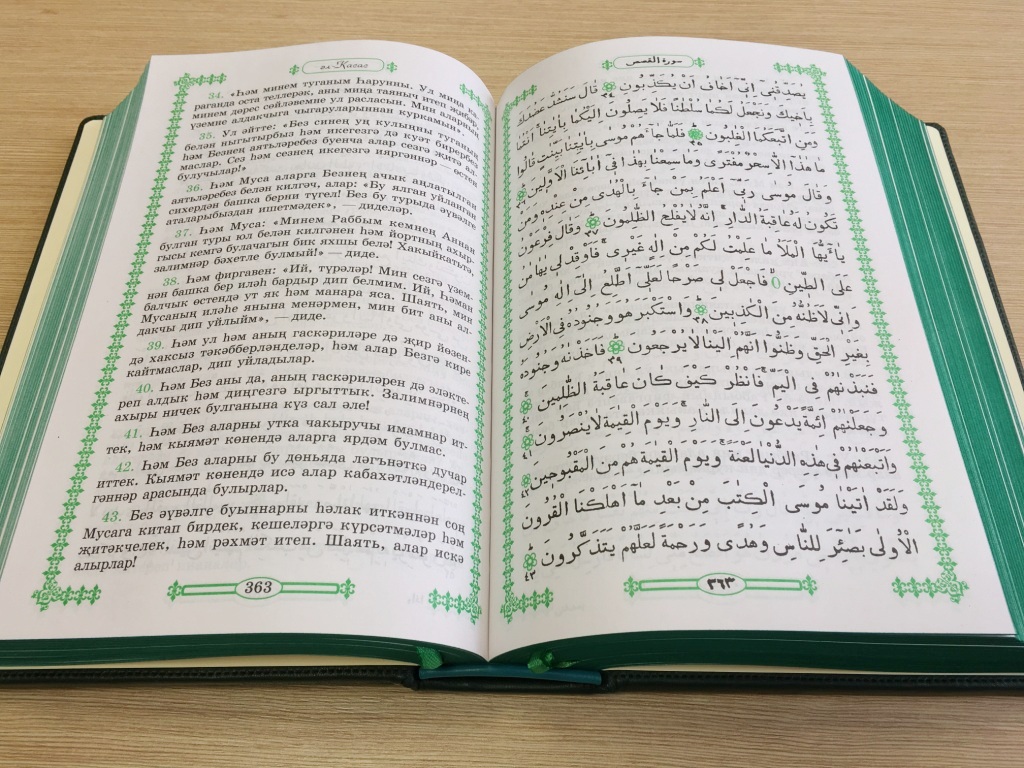 әл-Касас
34. «Һәм минем туганым Һарунны. Ул миңа ка-
раганда оста теллерәк, аны миңа таяныч итеп җибәр,
минем дөрес сөйләвемне ул расласын. Мин аларның
үземне алдакчыга чыгаруларыннан куркамын!».
35. Ул әйтте: «Без синең уң кулыңны туганың
белән ныгытырбыз һәм икегезгә дә куәт бирербез
һәм Безнең аятьләребез буенча алар сезгә җитә ал-
маслар. Сез һәм сезнең икегезгә ияргәннәр — өстен
булучылар!»
36. Һәм Муса аларга Безнең ачык аңлатылган
аятьләребез белән килгәч, алар: «Бу ялган уйланган
сихердән башка берни түгел! Без бу турыда әүвәлге
аталарыбыздан ишетмәдек», — диделәр.
37. Һәм Муса: «Минем Раббым кемнең Аннан
булган туры юл белән килгәнен һәм йортның ахыр-
гысы кемгә булачагын бик яхшы белә! Хакыйкатьтә,
залимнәр бәхетле булмый!» — диде.
38. Һәм фиргавен: «Ий, түрәләр! Мин сезгә үзем-
нән башка бер иләһ бардыр дип белмим. Ий, Һәман
балчык өстендә ут як һәм манара яса. Шаять, мин
Мусаның иләһе янына менәрмен, мин бит аны ал-
дакчы дип уйлыйм», — диде.
39. Һәм ул һәм аның гаскәриләре дә җир йөзен-
дә хаксыз тәкәбберләнделәр, һәм алар Безгә кире
кайтмаслар, дип уйладылар.
40. Һәм Без аны да, аның гаскәриләрен дә эләкте-
реп алдык һәм диңгезгә ыргыттык. Залимнәрнең
ахыры ничек булганына күз сал әле!
41. Һәм Без аларны утка чакыручы имамнар ит-
тек, һәм кыямәт көнендә аларга ярдәм булмас.
42. Һәм Без аларны бу дөньяда ләгънәткә дучар
иттек. Кыямәт көнендә исә алар кабахәтләндерел-
гәннәр арасында булырлар.
43. Без әүвәлге буыннарны һәлак иткәннән соң
Мусага китап бирдек, кешеләргә күрсәтмәләр һәм
җитәкчелек, һәм рәхмәт итеп. Шаять, алар искә
алырлар!
363
سورة القصص
يُصَدِّقُنِي اِنِّي اَخَافُ اَنْ يُكَذِّبُونِ ٣٤ قَالَ سَنَشُدُّ عَضُدَكَ
بِاَخِيكَ وَنَجْعَلُ لَكُمَا سُلْطَانًا فَلَا يَصِلُونَ اِلَيْكُمَا بِاٰيٰتِنَا اَنْتُمَا
وَمَنِ اتَّبَعَكُمَا الْغٰلِبُونَ ٣٥ فَلَمَّا جَاۤءَهُمْ مُوسٰى بِاٰيٰتِنَا بَيِّنٰتٍ قَالُوا
مَا هٰذَا اِلَّا سِحْرٌ مُفْتَرًى وَمَا سَمِعْنَا بِهٰذَا فِي اٰبَاۤئِنَا الْاَوَّلِينَ ٣٦
وَقَالَ مُوسٰى رَبِّي اَعْلَمُ بِمَنْ جَاۤءَ بِالْهُدٰى مِنْ عِنْدِهِ وَمَنْ
تَكُونُ لَهُ عَاقِبَةُ الدَّارِ اِنَّهُ لَا يُفْلِحُ الظّٰلِمُونَ ٣٧ وَقَالَ فِرْعَوْنُ
يٰاَيُّهَا الْمَلَأُ مَا عَلِمْتُ لَكُمْ مِنْ اِلٰهٍ غَيْرِي فَاَوْقِدْ لِي يٰهَامٰنُ
عَلَى الطِّينِ فَاجْعَلْ لِي صَرْحًا لَعَلِّي اَطَّلِعُ اِلٰى اِلٰهِ مُوسٰى
وَاِنِّي لَاَظُنُّهُ مِنَ الْكٰذِبِينَ ٣٨ وَاسْتَكْبَرَ هُوَ وَجُنُودُهُ فِي الْاَرْضِ
بِغَيْرِ الْحَقِّ وَظَنُّوا اَنَّهُمْ اِلَيْنَا لَا يُرْجَعُونَ ٣٩ فَاَخَذْنٰهُ وَجُنُودَهُ
فَنَبَذْنٰهُمْ فِي الْيَمِّ فَانْظُرْ كَيْفَ كَانَ عَاقِبَةُ الظّٰلِمِينَ ٤٠
وَجَعَلْنٰهُمْ اَئِمَّةً يَدْعُونَ اِلَى النَّارِ وَيَوْمَ الْقِيٰمَةِ لَا يُنْصَرُونَ ٤١
وَاَتْبَعْنٰهُمْ فِي هٰذِهِ الدُّنْيَا لَعْنَةً وَيَوْمَ الْقِيٰمَةِ هُمْ مِنَ الْمَقْبُوحِينَ ٤٢
وَلَقَدْ اٰتَيْنَا مُوسَى الْكِتٰبَ مِنْ بَعْدِ مَا اَهْلَكْنَا الْقُرُونَ
الْاُولٰى بَصَاۤئِرَ لِلنَّاسِ وَهُدًى وَرَحْمَةً لَعَلَّهُمْ يَتَذَكَّرُونَ ٤٣
٣٦٣